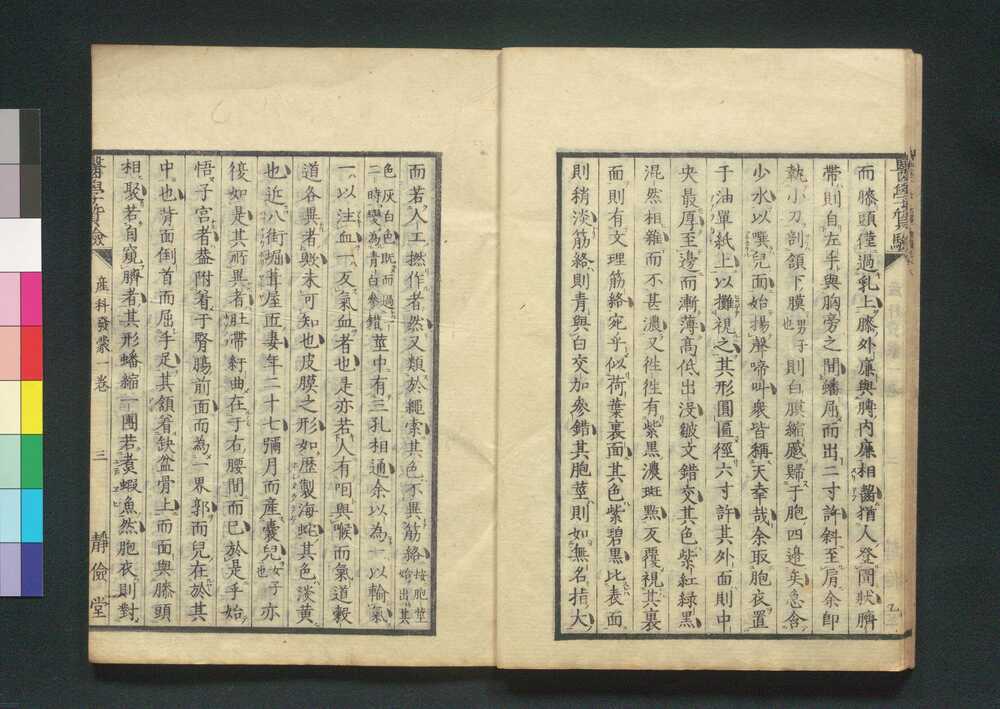 而膝頭僅過乳上膝外廉與髀内廉相齧猶人登圊狀臍
帶則自左手與胸旁之間蟠屈而出二寸許斜至肩余卽
執小刀剖頷下膜男子也則白膜縮蹙歸于胞四邊矣急含
少水以噀兒面始揚聲啼叫衆皆稱天幸哉余取胞衣置
于油單紙上以攤視之其形圓匾徑六寸許其外面則中
央最厚至邊而漸薄高低出没皴文錯交其色紫紅緑黒
混然相雜而不甚濃又徃徃有紫黒濃斑㸃反覆視其裏
面則有文理筋絡宛乎似荷葉裏面其色紫碧黒比表面
則稍淡筋絡則青與白交加參錯其胞莖則如無名指大
而若人工撚作者然又類於繩索其色不異筋絡按胞莖始出其
色灰白色既而過一二時變為青白參錯莖中有三孔相通余以為一以輸氣
一以注血一反氣血者也是亦若人有咽與喉而氣道穀
道各異者歟未可知也皮膜之形如歴製海蛇其色淡黄
也近八街堀葺屋匠妻年二十七彌月而産嚢兒女子也亦
後如是其所異者肚帶紆曲在于右腰間而已於是乎始
悟子宮者葢附着于腎腸前面而為一界郭而兒在於其
中也背面倒首而屈手足其頷着缺盆骨上而面與膝頭
相聚若自窺臍者其形蟠縮一團若煮蝦魚然胞衣則對
醫學質驗
産科發蒙一卷
三
靜儉堂